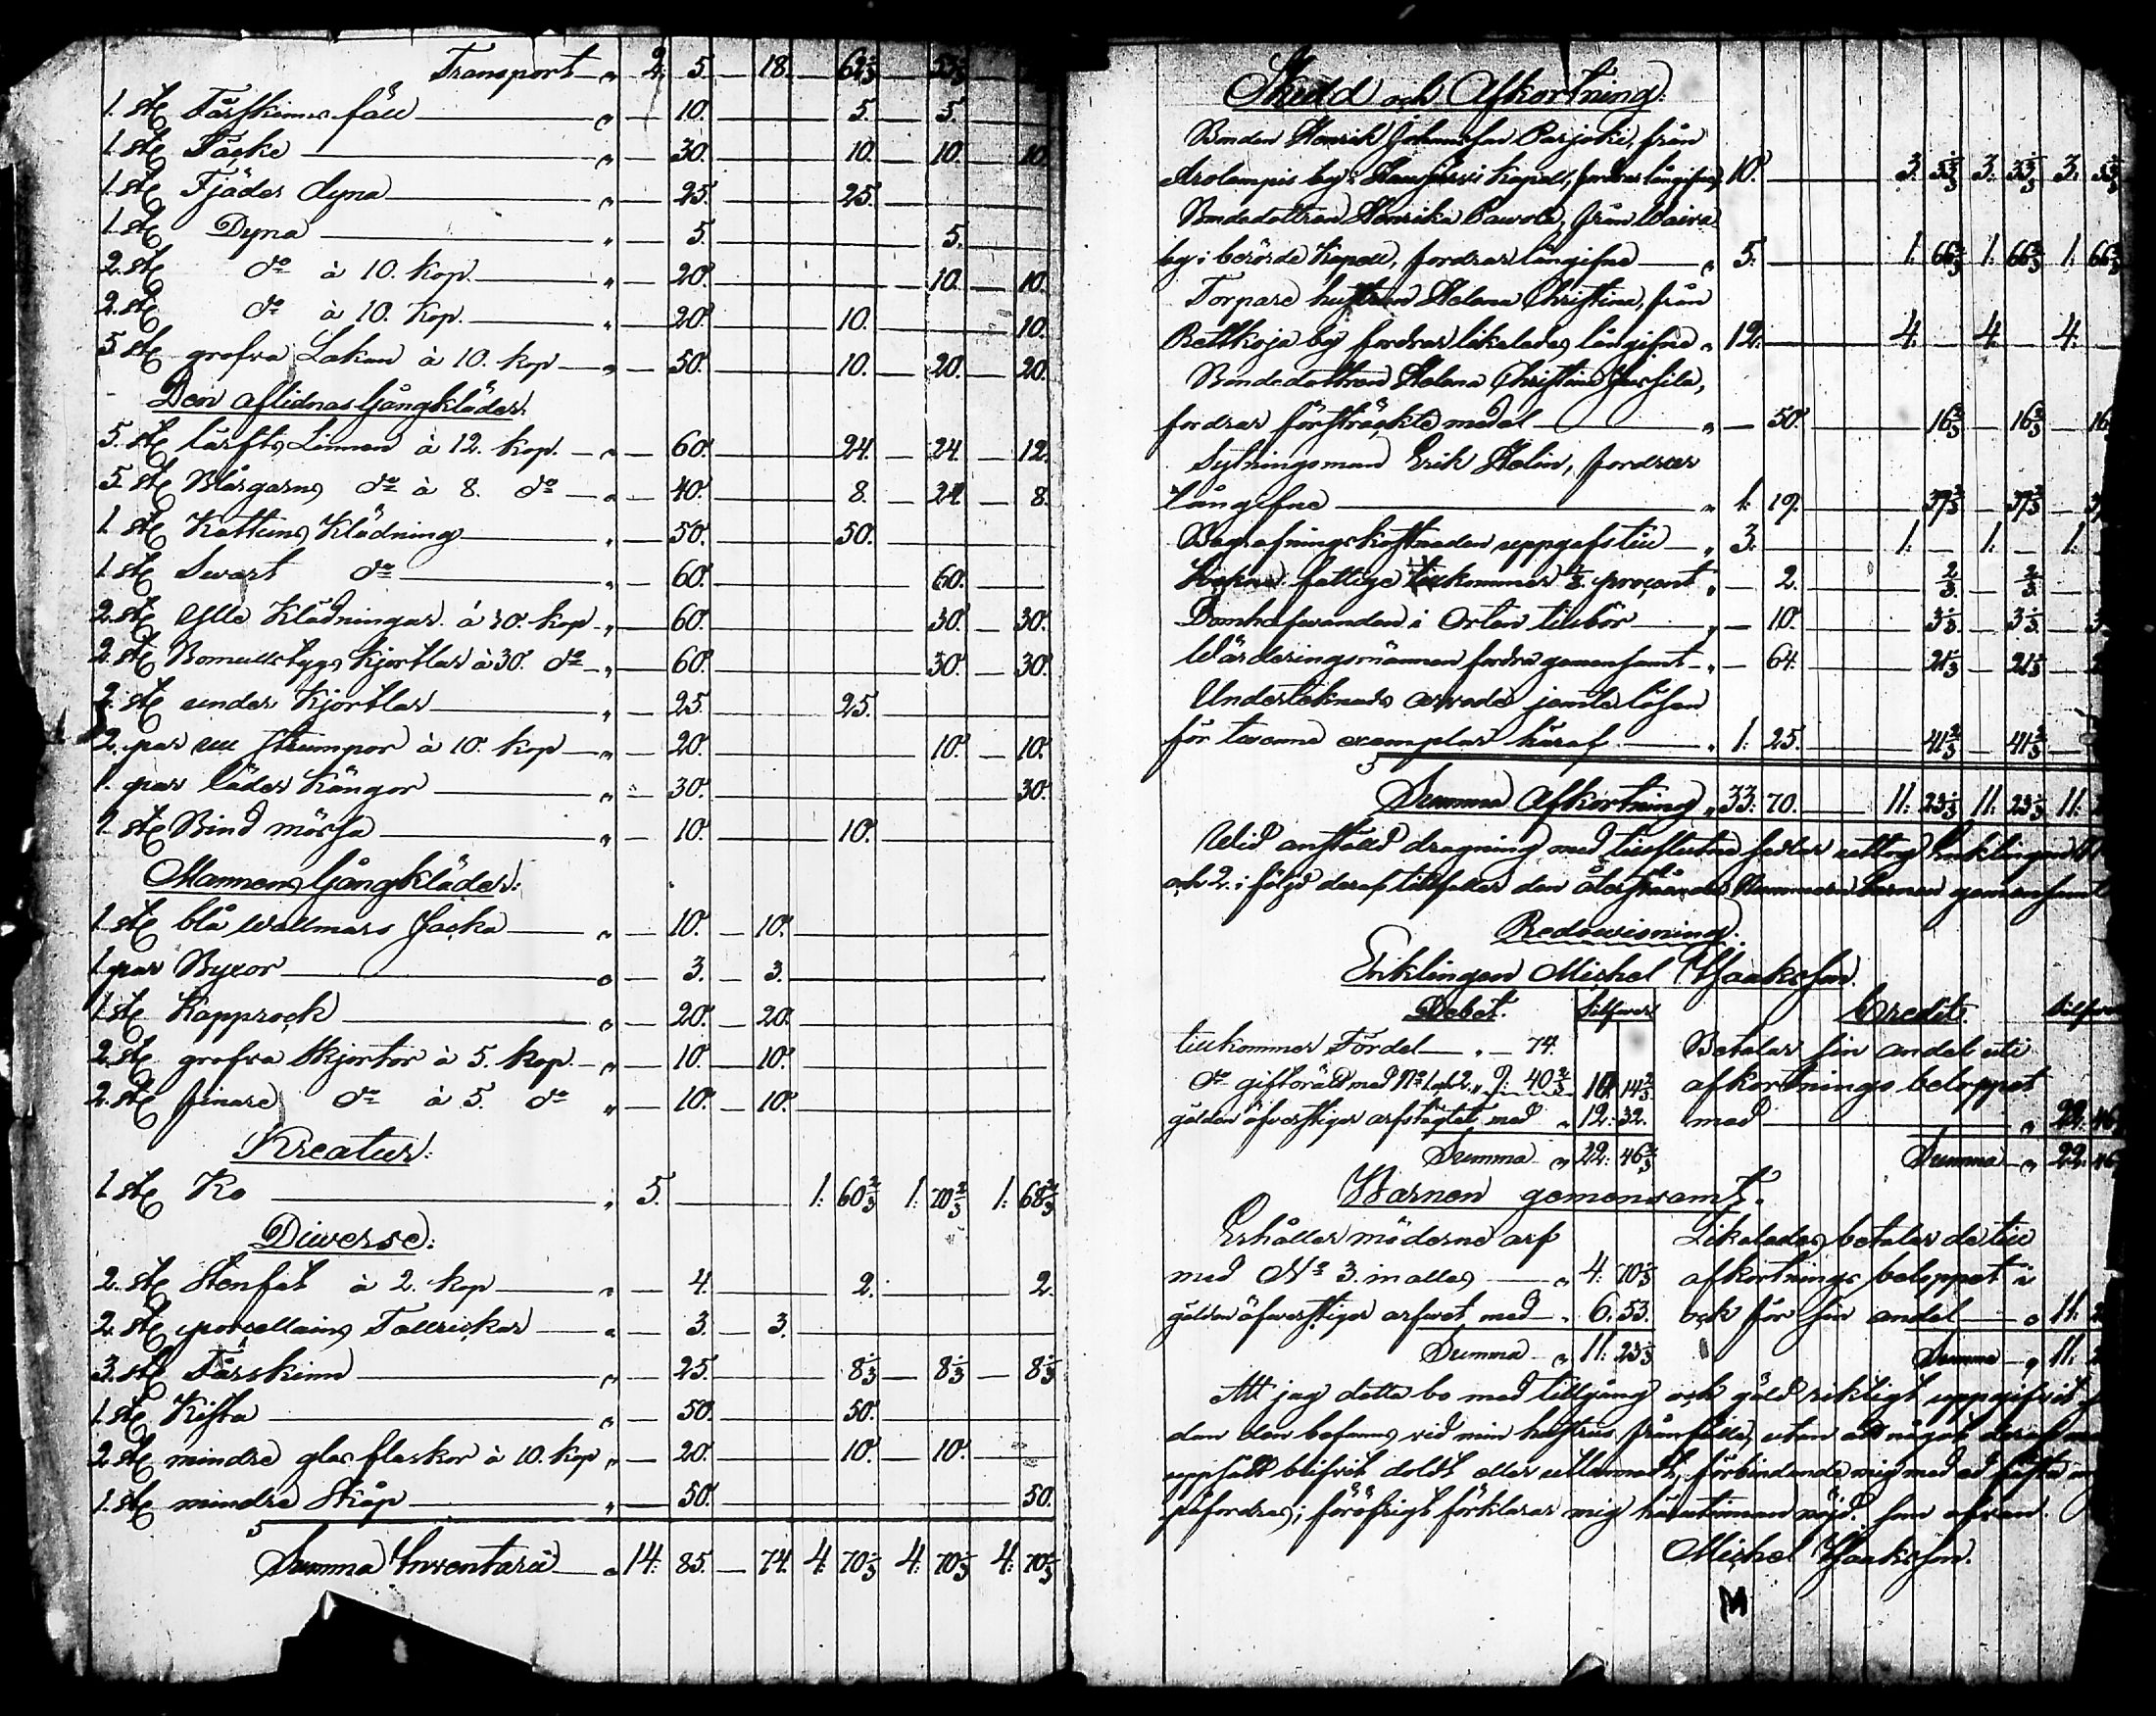 Transport " 2. 5. — 18. — 62 2/3 — 53 1/3 —
1. st. Fårskinns fäll " — 10. 5. 5.
1. st. Täcke " — 30. 10. — 10. 10.
1. st. Fjäder dyna " — 25. 25.
1. st. Dyna " — 5. 5.
2. st. do à 10. kop. " — 20. 10. 10.
2. st. do à 10. kop. " — 20. 10. 10.
5 st. grofva Lakan à 10. kop " — 50. 10. 20. 20.
Den aflidnas Gångkläder.
5. st. lärfts Linnen à 12. kop. " — 60. 24. 24. 12.
5 st. Blårgarns do à 8. do " — 40. 8. 24. 8.
1. st. Kattuns Klädning " — 50. 50.
1. st. Swart do " — 60. 60.
2. st. Ylle Klädningar à 30. kop " — 60. 30. 30.
2. st. Bomullstygs kjortlar à 30. do " — 60. 30. 30.
2. st. under kjortlar " — 25. 25.
2. par ull strumpor à 10. kop " — 20. 10. 10.
1. par läder Kängor " — 30. 30.
1. st. Bind mössa " — 10. 10.
Mannens Gångkläder:
1. st. blå wallmars Jacka " — 10. — 10.
1. par Byxor " — 3. — 3.
1. st. Kapprock " — 20. — 20.
2. st. grofva skjortor à 5. kop. " — 10. — 10.
2. st. finare do à 5. do " — 10. — 10.
Kreatur:
1. st. Ko " 5. 1: 60 2/3 1: 70 2/3 1: 68 2/3
Diverse:
2. st. Stenfat à 2. kop " — 4. 2. 2.
2. st. porcellains Tallrickar " — 3. — 3.
3. st. Fårskinn " — 25. 8 1/3 — 8 1/3 — 8 1/3
1. st. Kista " — 50. 50.
2. st. mindre glas flaskor à 10. kop " — 20. 10. — 10.
1. st. mindre Skåp " — 50. 50.
Summa Inventarii " 14: 85. — 74. 4: 70 1/3 4: 70 1/3 4: 70 1/3
Skuld och Afkortning:
Bonden Henrik Johansson Parjokie, från
Arolampis by i Hausjärvi Kapell, fordrar långifne 10. 3. 33 1/3 3. 33 1/3 3. 33 1/3
Bondedottren Henrika Pawola, från
by i berörde Kapell, fordrar långifne " 5. 1. 66 2/3 1. 66 2/3 1. 66 2/3
Torpare hustrun Helena Christina, från
by fordrar likaledes långifne " 12. 4. — 4. — 4.
Bondedottren Helena Christina
fordrar försträckte medel " — 50. 16 2/3 — 16 2/3 — 16
Sytningsman Erik Helin, fordrar
långifne " 1. 19. 39 2/3 — 39 2/3
Begrafningskostnaden uppgafs till " 3. 1: — 1: — 1:
fattige tillkommer proçent " — 2. 2/3 2/3
Domhafvanden i Orten tillbör " — 10. 3 1/3 — 3 1/3
Wärderingsmännen fordra gemensamt " — 64. 21 1/3 — 21 1/3
Undertecknads arvode jemte lösen
för tvenne exemplar häraf " 1: 25. 41 2/3 — 41 2/3
Summa Afkortning " 33: 70. 11: 23 1/3 11: 23 1/3 11:
Wid anställd dragning med tillslutne sedlar uttog Enklingen
och 2. i följd deraf tillfaller den återstående Nummern barnen gemensamt
Redovisning.
Enklingen Michel Isaksson.
Debet. Silfver Credit. Silfver
tillkommer Fördel " — 74. Betalar sin andel uti
do giftorätt med No 1. och 2. " 9: 40 2/3 10: 14 2/3 afkortnings beloppet
gälden öfverstiger arfslåttet med " 12: 32. med " 22: 46
Summa " 22: 46 2/3 Summa " 22: 46
Barnen gemensamt.
Erhåller möderne arf Likaledes betalar de till
med No 3. in alles " 4: 70 1/3 afkortnings beloppet
gälden öfverstiger arfvet med " 6. 53. ock för sin andel " 11:
Summa " 11: 23 1/3 Summa " 11:
Att jag detta bo med tillgång och gäld riktigt uppgifvit
den befanns vid min hustrus frånfälle, utan att något deraf
uppsåtl. blifvit doldt eller utlemnadt, förbindande mig med ed fästa
påfordras; föröfrigt förklarar mig härutinnan nöjd. som ofvan.
Michel Isaksson.